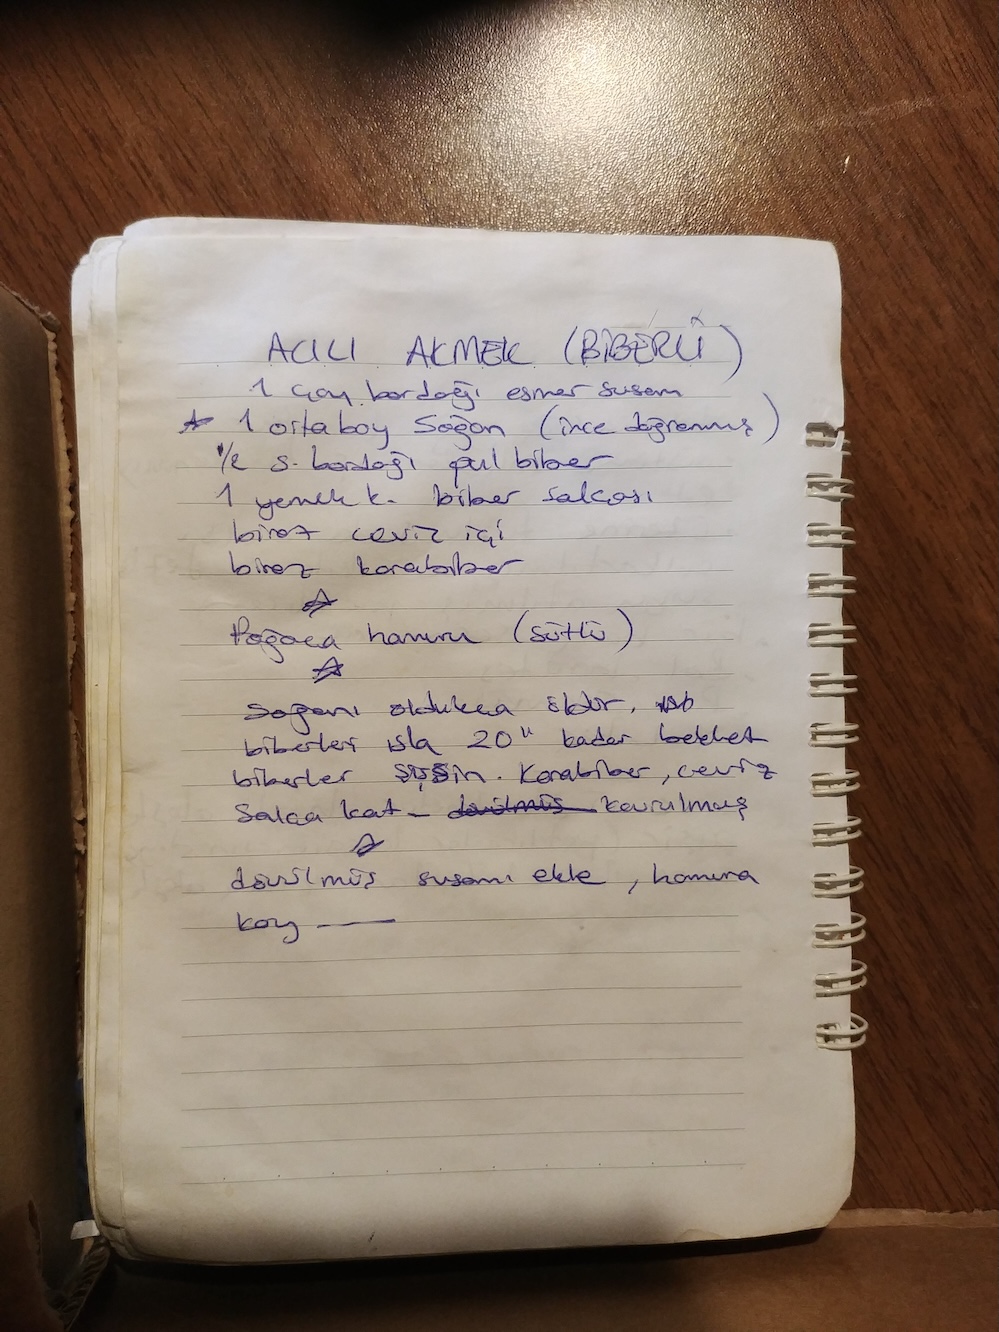 ACILI AKMEK (BİBERLİ)
1 çay bardağı esmer susam
1 orta boy Soğan (ince doğranmış)
1/2 s. bardağı pul biber
1 yemek k. biber salçası
biraz ceviz içi
biraz karabiber
Poğaca hamuru (sütlü)
Soğanı oldukca öldür,
biberleri ısla 20" kadar beklet
biberler şişsin. Karabiber, ceviz
Salca kat - dövülmüş kavrulmuş
dövülmüş susamı ekle, hamura
koy